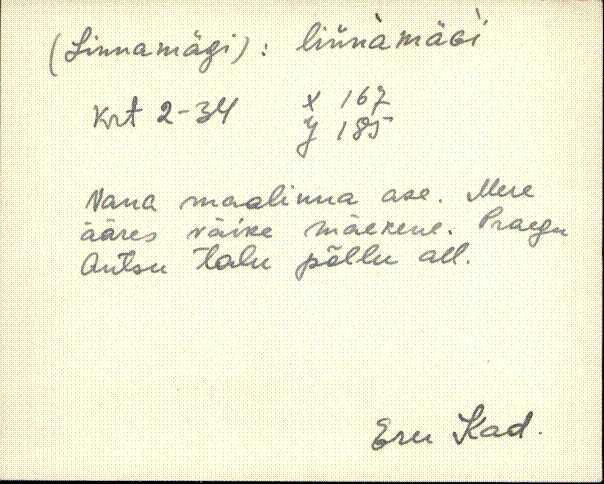 (Linnamägi): liinamäGi
Krt 2-34 x 167
y 185
Vana maalinna ase. Mere
ääres väike mäekene. Praegu
Antsu talu põllu all.
Eru Kad.